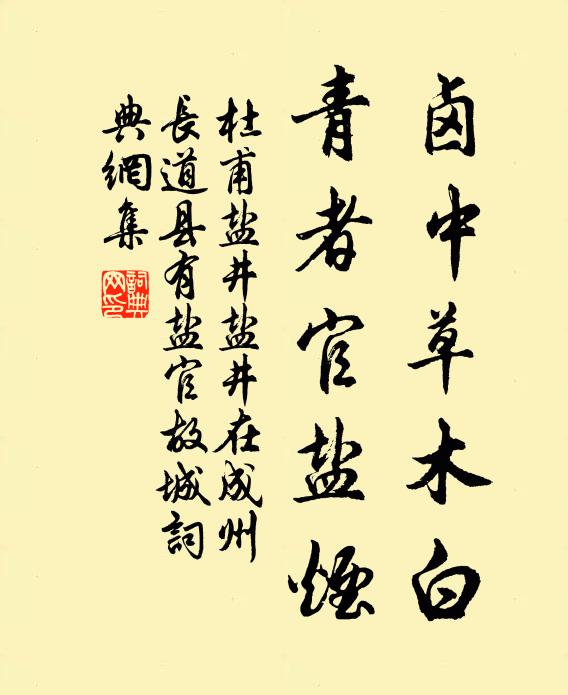 卤中草木白
青者官盐煙
杜甫盐井盐井在成州
长道县有盐官故城詞
典網集
詞典
网印